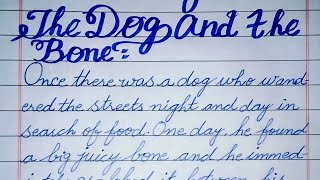 The Dog and the
Bone:-
Once there was a dog who wand
ered the streets night and day in
search of food. One day, he found
a big juicy bone and he immed
between his